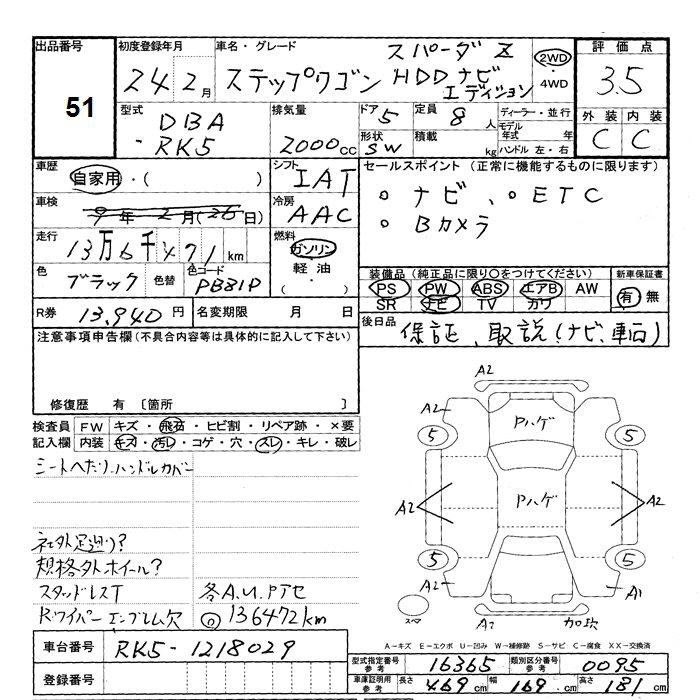 出品番号
51
初度登録年月
24年2月
車名・グレード
ステップワゴン
スパーダZ
HDDナビ
エディション
2WD
・
4WD
評価点
3.5
外装 内装
C C
型式
DBA
-RK5
排気量
2000cc
ドア
5
形状
SW
定員
8人
積載
kg
ディーラー・並行
モデル年式 年
ハンドル 左・右
車歴
自家用・( )
車検
9年2月(26日)
走行
13万6千471km
色
ブラック
色替
色コード
PB81P
シフト
IAT
冷房
AAC
燃料
ガソリン
軽油
・
( )
セールスポイント(正常に機能するものに限ります)
○ナビ、○ETC
○Bカメラ
装備品(純正品に限り○をつけてください)
PS PW ABS エアB AW
SR ナビ TV カワ
新車保証書
有 無
R券 13,940円
名変期限 月 日
後日品
保証、取説(ナビ、車両)
注意事項申告欄(不具合内容等は具体的に記入して下さい)
修復歴 有 〔箇所 〕
検査員記入欄
FW キズ・飛石・ヒビ割・リペア跡・×要
内装 キズ・汚レ・コゲ・穴・スレ・キレ・破レ
シートヘたり、ハンドルカバー
社外足廻り?
規格外ホイール?
スタッドレスT
Rワイパー エンブレム欠
各A.U.Pテセ
◎136472km
A2
A2 Pハゲ A2
5 5
A2 Pハゲ A2
5 5
A2 A1
スペマ
A2 加吹
A-キズ E-エクボ U-凹み W-補修跡 S-サビ C-腐食 XX-交換済
車台番号 RK5-1218029
登録番号
型式指定番号 参考 16365
類別区分番号 参考 0095
車庫証明用 参考 長さ 469cm 幅 169cm 高さ 181cm